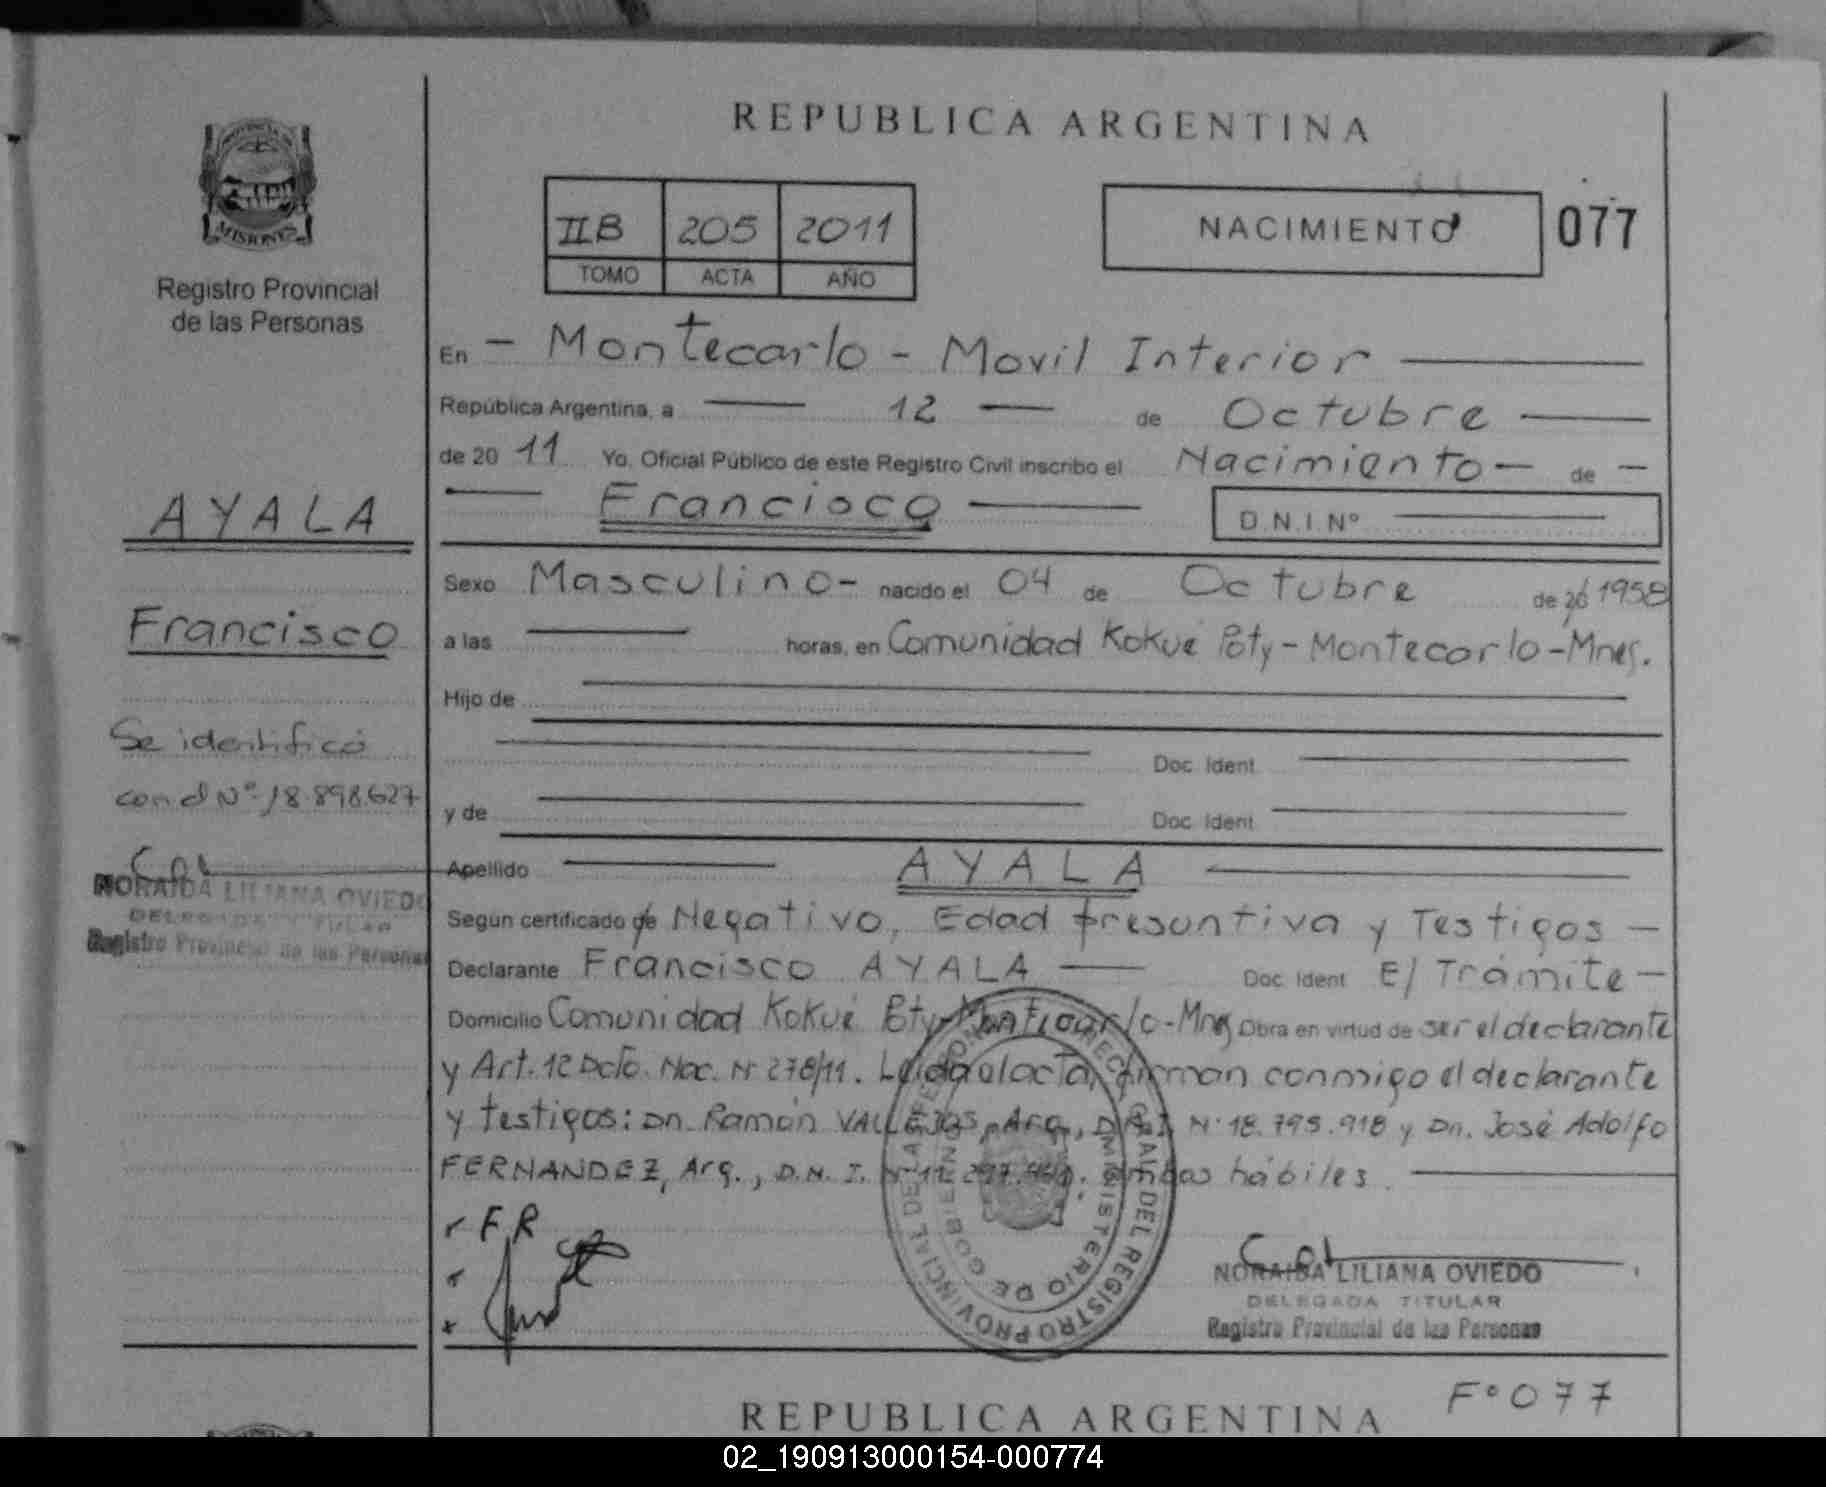 PROVINCIA
MISIONES
Registro Provincial
de las Personas
AYALA
Francisco
Se identificó
con el Nº 18.898.627
NORAIDA LILIANA OVIEDO
DELEGADA TITULAR
Registro Provincial de las Personas
REPUBLICA ARGENTINA
IIB 205 2011
TOMO ACTA AÑO
NACIMIENTO 077
En - Montecarlo - Movil Interior
República Argentina, a 12 de Octubre
de 20 11 Yo, Oficial Público de este Registro Civil inscribo el Nacimiento - de -
Francisco D.N.I. Nº
Sexo Masculino - nacido el 04 de Octubre de 20 1958
a las horas, en Comunidad Kokué Poty - Montecarlo - Mnes.
Hijo de
Doc. Ident.
y de Doc. Ident.
Apellido AYALA
Según certificado de Negativo, Edad Presuntiva y Testigos -
Declarante Francisco AYALA Doc. Ident. E/ Trámite -
Domicilio Comunidad Kokué Poty - Montecarlo - Mnes Obra en virtud de ser el declarante
y Art. 12 Dcto. Nac. Nº 278/11. Leída el acta, firman conmigo el declarante
y testigos: Dn. Ramón VALLEJOS, Arg., D.N.I. Nº 18.795.918 y Dn. José Adolfo
FERNANDEZ, Arg., D.N.I. Nº ambos hábiles.
F R
DIRECCION GRAL DEL REGISTRO PROVINCIAL DE LAS PERSONAS
MINISTERIO DE GOBIERNO
NORAIDA LILIANA OVIEDO
DELEGADA TITULAR
Registro Provincial de las Personas
Fº 077
REPUBLICA ARGENTINA
02_190913000154-000774